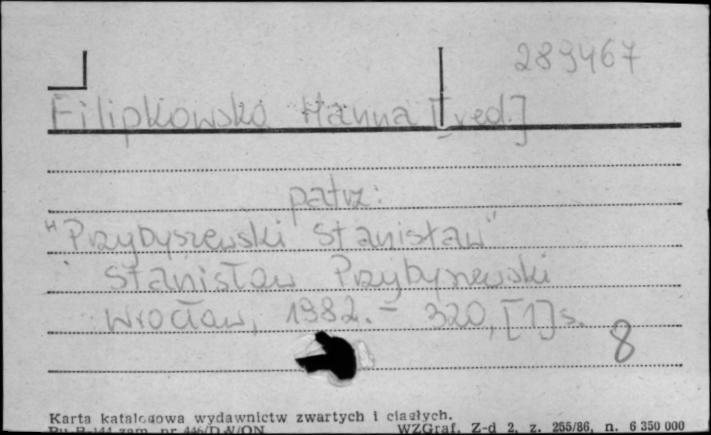 289467
Filipkowska Hanna [red.]
patrz:
"Przybyszewski Stanisław"
Stanisław Przybyszewski
Wrocław, 1982. - 320, [1] s.
8
Karta katalogowa wydawnictw zwartych i ciągłych.
Pu B-144 zam. nr 446/D W/ON WZGraf. Z-d 2, z. 255/86, n. 6 350 000